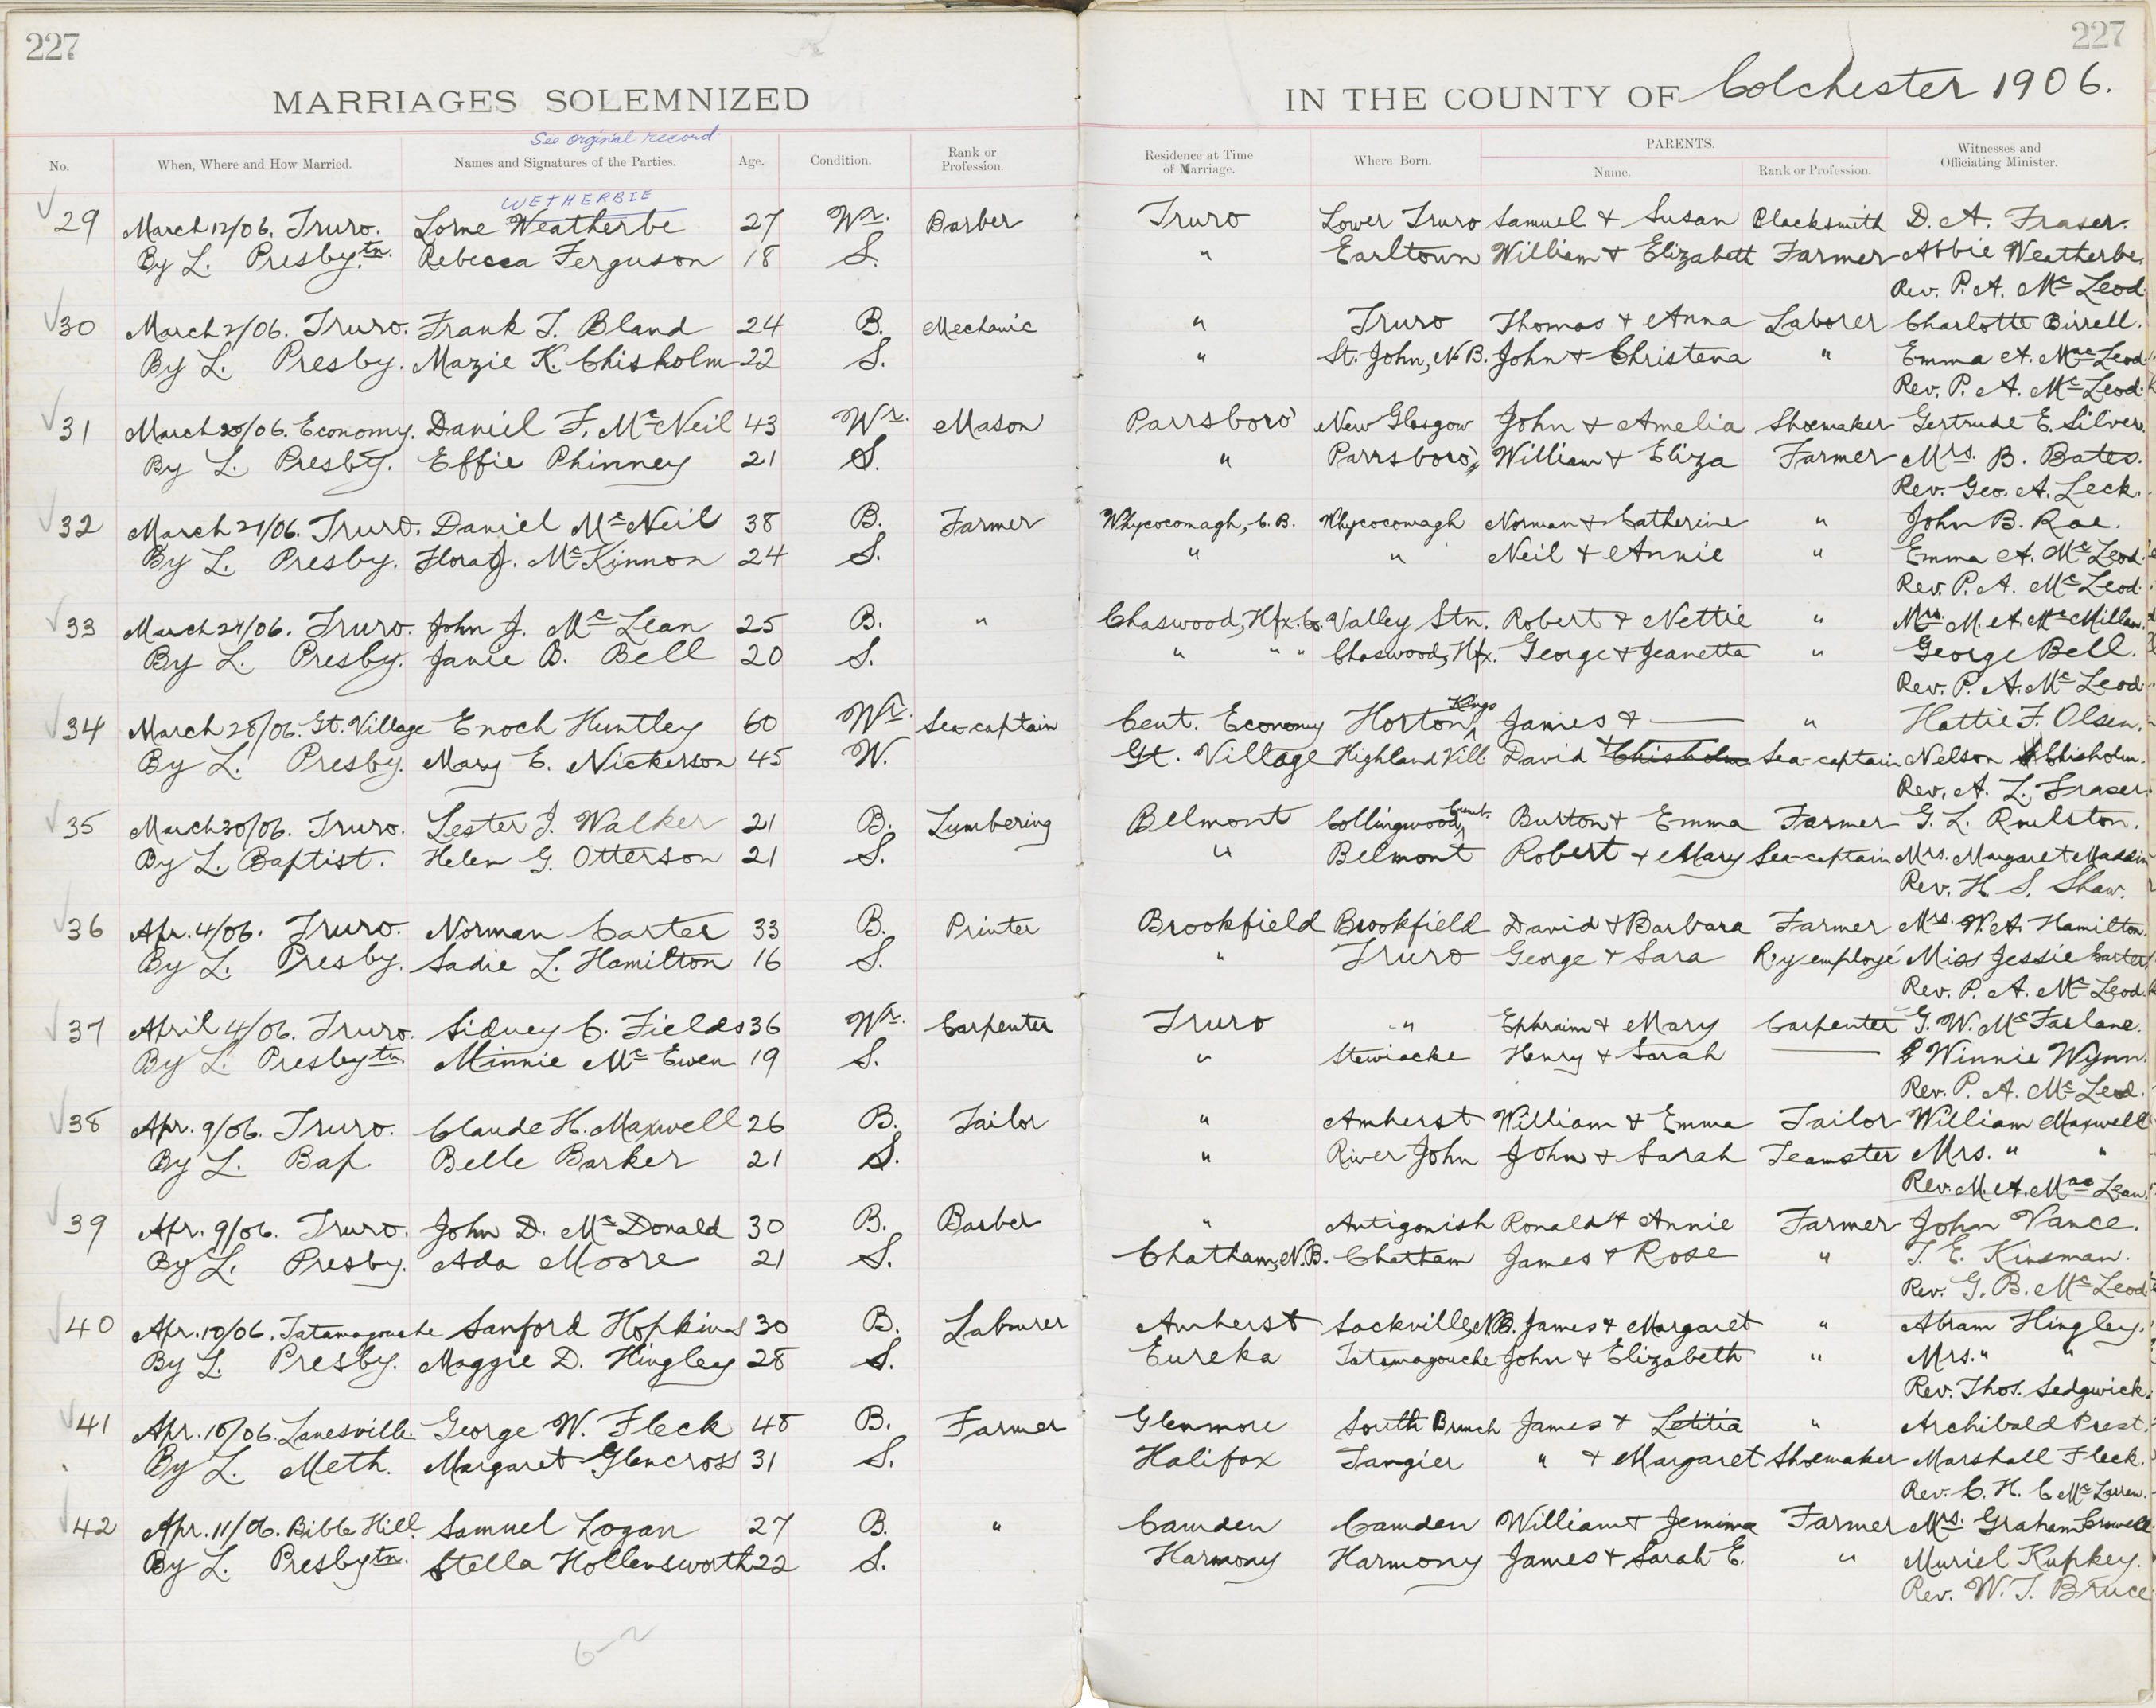 227
227
MARRIAGES SOLEMNIZED
IN THE COUNTY OF Colchester 1906.
See orginal record.
No. When, Where and How Married. Names and Signatures of the Parties. Age. Condition. Rank or Profession. Residence at Time of Marriage. Where Born. PARENTS. Name. Rank or Profession. Witnesses and Officiating Minister.
WETHERBIE
29 March 12/06. Truro. Lorne Weatherbe 27 Wr. Barber Truro Lower Truro Samuel & Susan Blacksmith D. A. Fraser.
By L. Presbytn. Rebecca Ferguson 18 S. " Earltown William & Elizabeth Farmer Abbie Weatherbe.
Rev. P. A. McLeod.
30 March 2/06. Truro. Frank T. Bland 24 B. Mechanic " Truro Thomas & Anna Laborer Charlotte Birrell.
By L. Presby. Mazie K. Chisholm 22 S. " St. John, N.B. John & Christena " Emma A. MacLeod
Rev. P. A. McLeod.
31 March 20/06. Economy. Daniel F. McNeil 43 Wr. Mason Parrsboro' New Glasgow John & Amelia Shoemaker Gertrude E. Silver.
By L. Presby. Effie Phinney 21 S. " Parrsboro' William & Eliza Farmer Mrs. B. Bates.
Rev. Geo. A. Leck.
32 March 21/06. Truro. Daniel McNeil 38 B. Farmer Whycocomagh, C. B. Whycocomagh Norman & Catherine " John B. Rae.
By L. Presby. Flora J. McKinnon 24 S. " " Neil & Annie " Emma A. McLeod.
Rev. P. A. McLeod.
33 March 24/06. Truro. John J. McLean 25 B. " Chaswood, Hfx. Co. Valley Stn. Robert & Nettie " Mrs. M. A. McMillan.
By L. Presby. Janie B. Bell 20 S. " " " Chaswood, Hfx. George & Jeanetta " George Bell.
Rev. P. A. McLeod.
34 March 28/06. Gt. Village Enoch Huntley 60 Wr. Sea-captain Cent. Economy Horton, Kings James & — " Hattie F. Olsen.
By L. Presby. Mary E. Nickerson 45 W. Gt. Village Highland Vill. David & Chisholm Sea-captain Nelson Chisholm.
Rev. A. L. Fraser.
35 March 30/06. Truro. Lester J. Walker 21 B. Lumbering Belmont Collingwood, Cumb. Burton & Emma Farmer G. L. Roulston.
By L. Baptist. Helen G. Otterson 21 S. " Belmont Robert & Mary Sea-captain Mrs. Margaret Maddin
Rev. H. S. Shaw.
36 Apr. 4/06. Truro. Norman Carter 33 B. Printer Brookfield Brookfield David & Barbara Farmer Mrs. W. A. Hamilton.
By L. Presby. Sadie L. Hamilton 16 S. " Truro George & Sara R'y employé Miss Jessie Carter
Rev. P. A. McLeod.
37 April 4/06. Truro. Sidney C. Fields 36 Wr. Carpenter Truro " Ephraim & Mary Carpenter G. W. McFarlane.
By L. Presbytn. Minnie McEwen 19 S. " Stewiacke Henry & Sarah — Winnie Wynn.
Rev. P. A. McLeod.
38 Apr. 9/06. Truro. Claude H. Maxwell 26 B. Tailor " Amherst William & Emma Tailor William Maxwell
By L. Bap. Belle Barker 21 S. " River John John & Sarah Teamster Mrs. " "
Rev. M. A. MacLean.
39 Apr. 9/06. Truro. John D. McDonald 30 B. Barber " Antigonish Ronald & Annie Farmer John Vance.
By L. Presby. Ada Moore 21 S. Chatham, N.B. Chatham James & Rose " T. E. Kinsman.
Rev. G. B. McLeod
40 Apr. 10/06. Tatamagouche Sanford Hopkins 30 B. Labourer Amherst Sackville, N.B. James & Margaret " Abram Hingley.
By L. Presby. Maggie D. Hingley 28 S. Eureka Tatamagouche John & Elizabeth " Mrs. " "
Rev. Thos. Sedgwick.
41 Apr. 10/06. Lanesville. George W. Fleck 48 B. Farmer Glenmore South Branch James & Letitia " Archibald Prest.
By L. Meth. Margaret Glencross 31 S. Halifax Tangier " & Margaret Shoemaker Marshall Fleck.
Rev. C. H. C. McLarren.
42 Apr. 11/06. Bible Hill. Samuel Logan 27 B. " Camden Camden William & Jemima Farmer Mrs. Graham Crowell
By L. Presbytn. Stella Hollensworth 22 S. Harmony Harmony James & Sarah E. " Muriel Kupkey.
Rev. W. T. Bruce